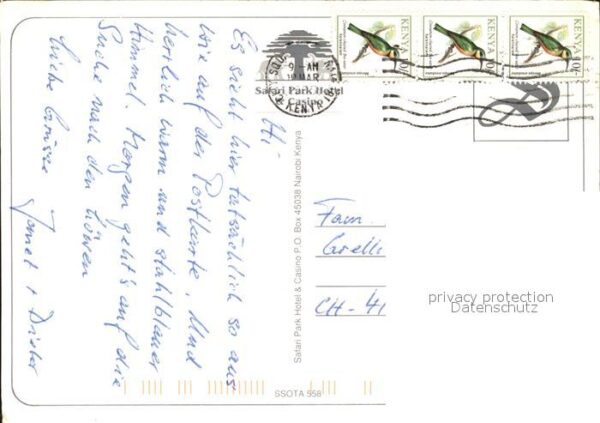 Hi -
Es sieht hier tatsächlich so aus
wie auf der Postkarte. Und
herrlich warm und stahlblauer
Himmel. Morgen geht's auf die
Suche nach den Löwen
Liebe Grüsse Jomet + Dieter
Safari Park Hotel
Casino
9 - AM
MAR
KENYA
KENYA
10/-
KENYA
10/-
KENYA
10/-
Safari Park Hotel & Casino P.O. Box 45038 Nairobi Kenya
Fam.
CH - 41
privacy protection
Datenschutz
SSOTA 558